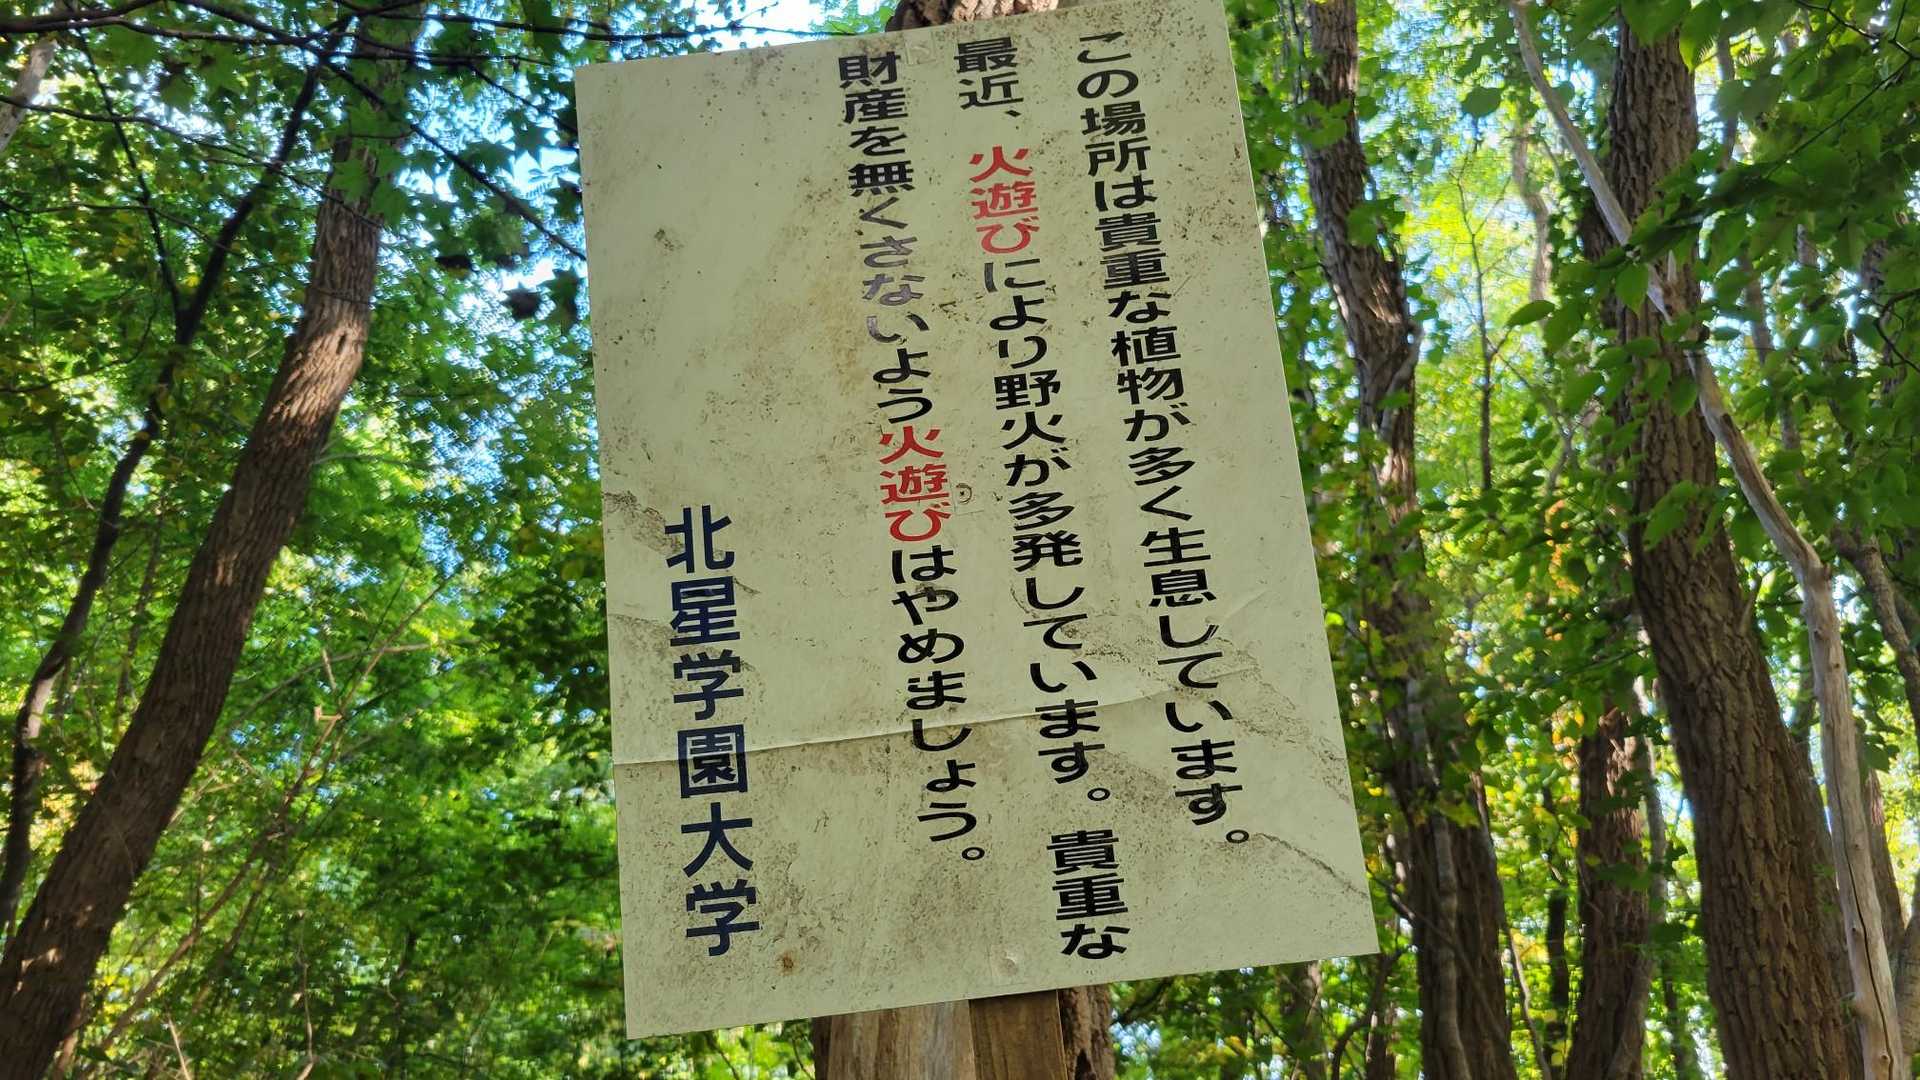 この場所は貴重な植物が多く生息しています。
最近、火遊びにより野火が多発しています。貴重な
財産を無くさないよう火遊びはやめましょう。
北星学園大学